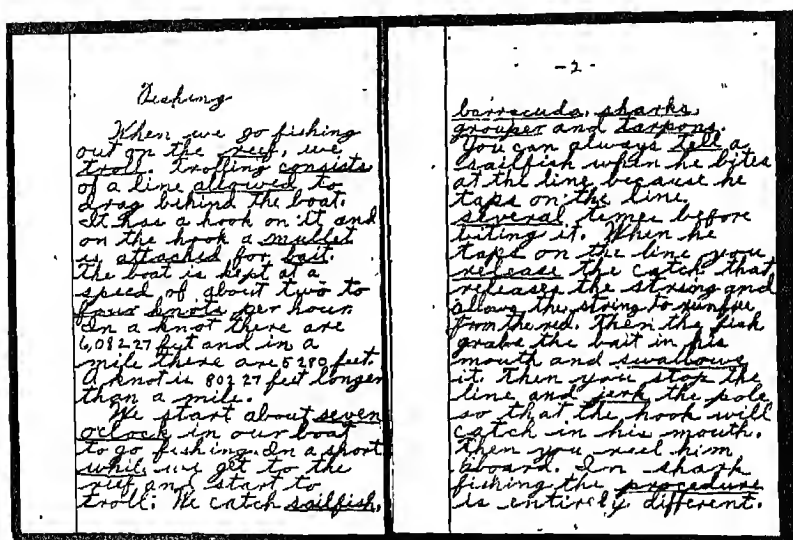 Fishing
When we go fishing
out on the reef, we
troll. Trolling consists
of a line allowed to
drag behind the boat.
It has a hook on it and
on the hook a mullet
is attached for bait.
The boat is kept at a
speed of about two to
four knots per hour.
In a knot there are
6,082.27 feet and in a
mile there are 5280 feet.
A knot is 802.27 feet longer
than a mile.
We start about seven
o'clock in our boat
to go fishing. In a short
while we get to the
reef and start to
troll. We catch sailfish,
-2-
barracuda, sharks,
grouper and tarpons.
You can always tell a
sailfish when he bites
at the line because he
taps on the line
several times before
biting it. When he
taps on the line you
release the catch that
releases the string and
allows the string to run free
from the reel. Then the fish
grabs the bait in his
mouth and swallows
it. Then you stop the
line and jerk the pole
so that the hook will
catch in his mouth.
Then you reel him
aboard. In shark
fishing the procedure
is entirely different.